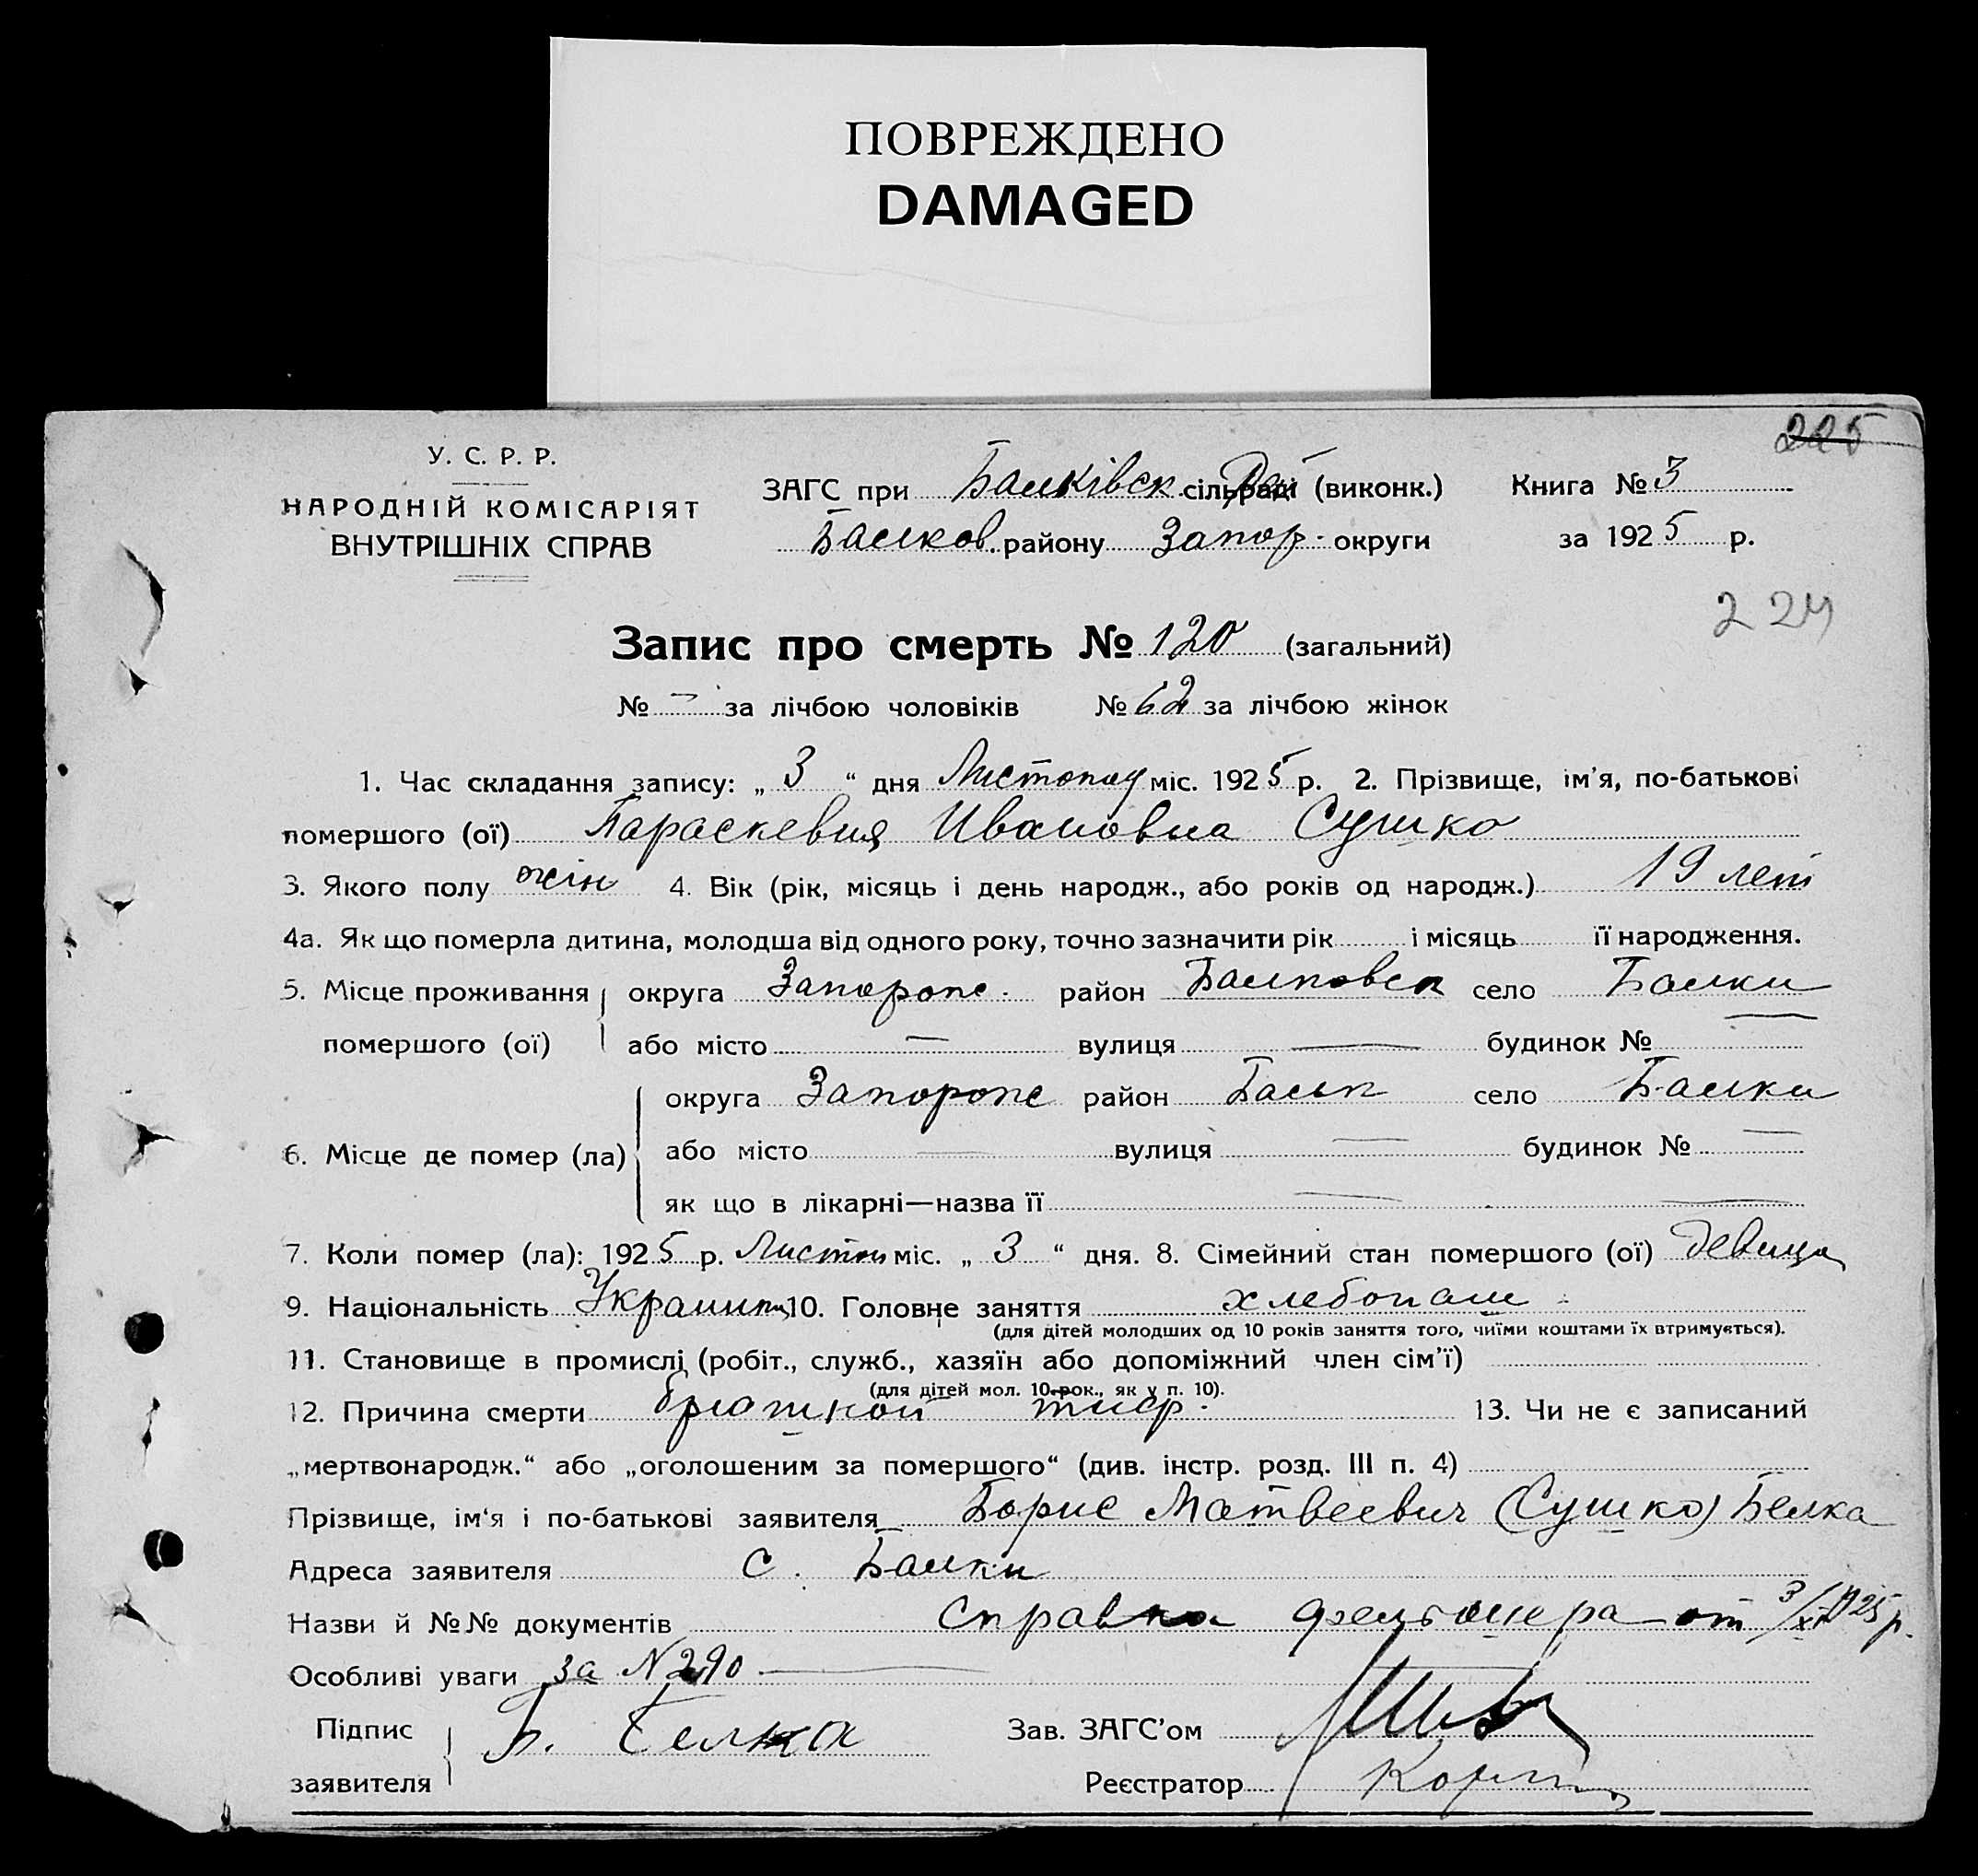 ПОВРЕЖДЕНО
DAMAGED
225
У. С. Р. Р.
НАРОДНІЙ КОМІСАРІЯТ
ВНУТРІШНІХ СПРАВ
ЗАГС при Балківск сільраді Рай (виконк.)
Балков. району Запор. округи
Книга № 3
за 1925 р.
224
Запис про смерть № 120 (загальний)
№ — за лічбою чоловіків № 62 за лічбою жінок
1. Час складання запису: „ 3 “ дня Листопад міс. 1925 р. 2. Прізвище, ім’я, по-батькові
помершого (ої) Параскевия Ивановна Сушко
3. Якого полу жін 4. Вік (рік, місяць і день народж., або років од народж.) 19 лет
4а. Як що померла дитина, молодша від одного року, точно зазначити рік і місяць її народження.
5. Місце проживання помершого (ої) округа Запорож. район Балковск село Балки
або місто — вулиця — будинок № —
6. Місце де помер (ла) округа Запорож район Балк село Балки
або місто — вулиця — будинок № —
як що в лікарні—назва її — —
7. Коли помер (ла): 1925 р. Листоп міс. „ 3 “ дня. 8. Сімейний стан помершого (ої) девица
9. Національність Украинка 10. Головне заняття хлебопаш
(для дітей молодших од 10 років заняття того, чиїми коштами їх втримується).
11. Становище в промислі (робіт., служб., хазяїн або допоміжний член сім’ї)
(для дітей мол. 10 рок., як у п. 10).
12. Причина смерти брюшной тиф. 13. Чи не є записаний
„мертвонародж.“ або „оголошеним за помершого“ (див. інстр. розд. III п. 4)
Прізвище, ім‘я і по-батькові заявителя Борис Матвеевич (Сушко) Белка
Адреса заявителя с. Балки
Назви й №№ документів справка фельдшера от 3/XI 1925 р.
Особливі уваги за N 290 —
Підпис заявителя Б. Белка
Зав. ЗАГС’ом
Реєстратор